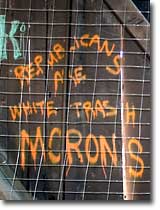 K
REPUBLICANS
ARE
WHITE TRASH
MCRONS